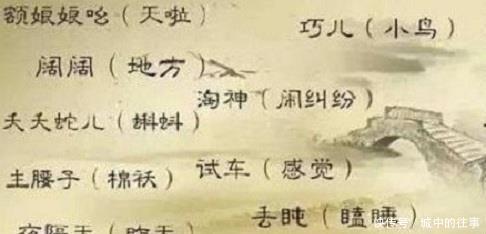 额娘娘吆（天啦）
巧儿（小鸟）
阔阔（地方）
淘神（闹纠纷）
夭夭蛇儿（蝌蚪）
试车（感觉）
主腰子（棉袄）
丢盹（瞌睡）
快传号／城中的往事